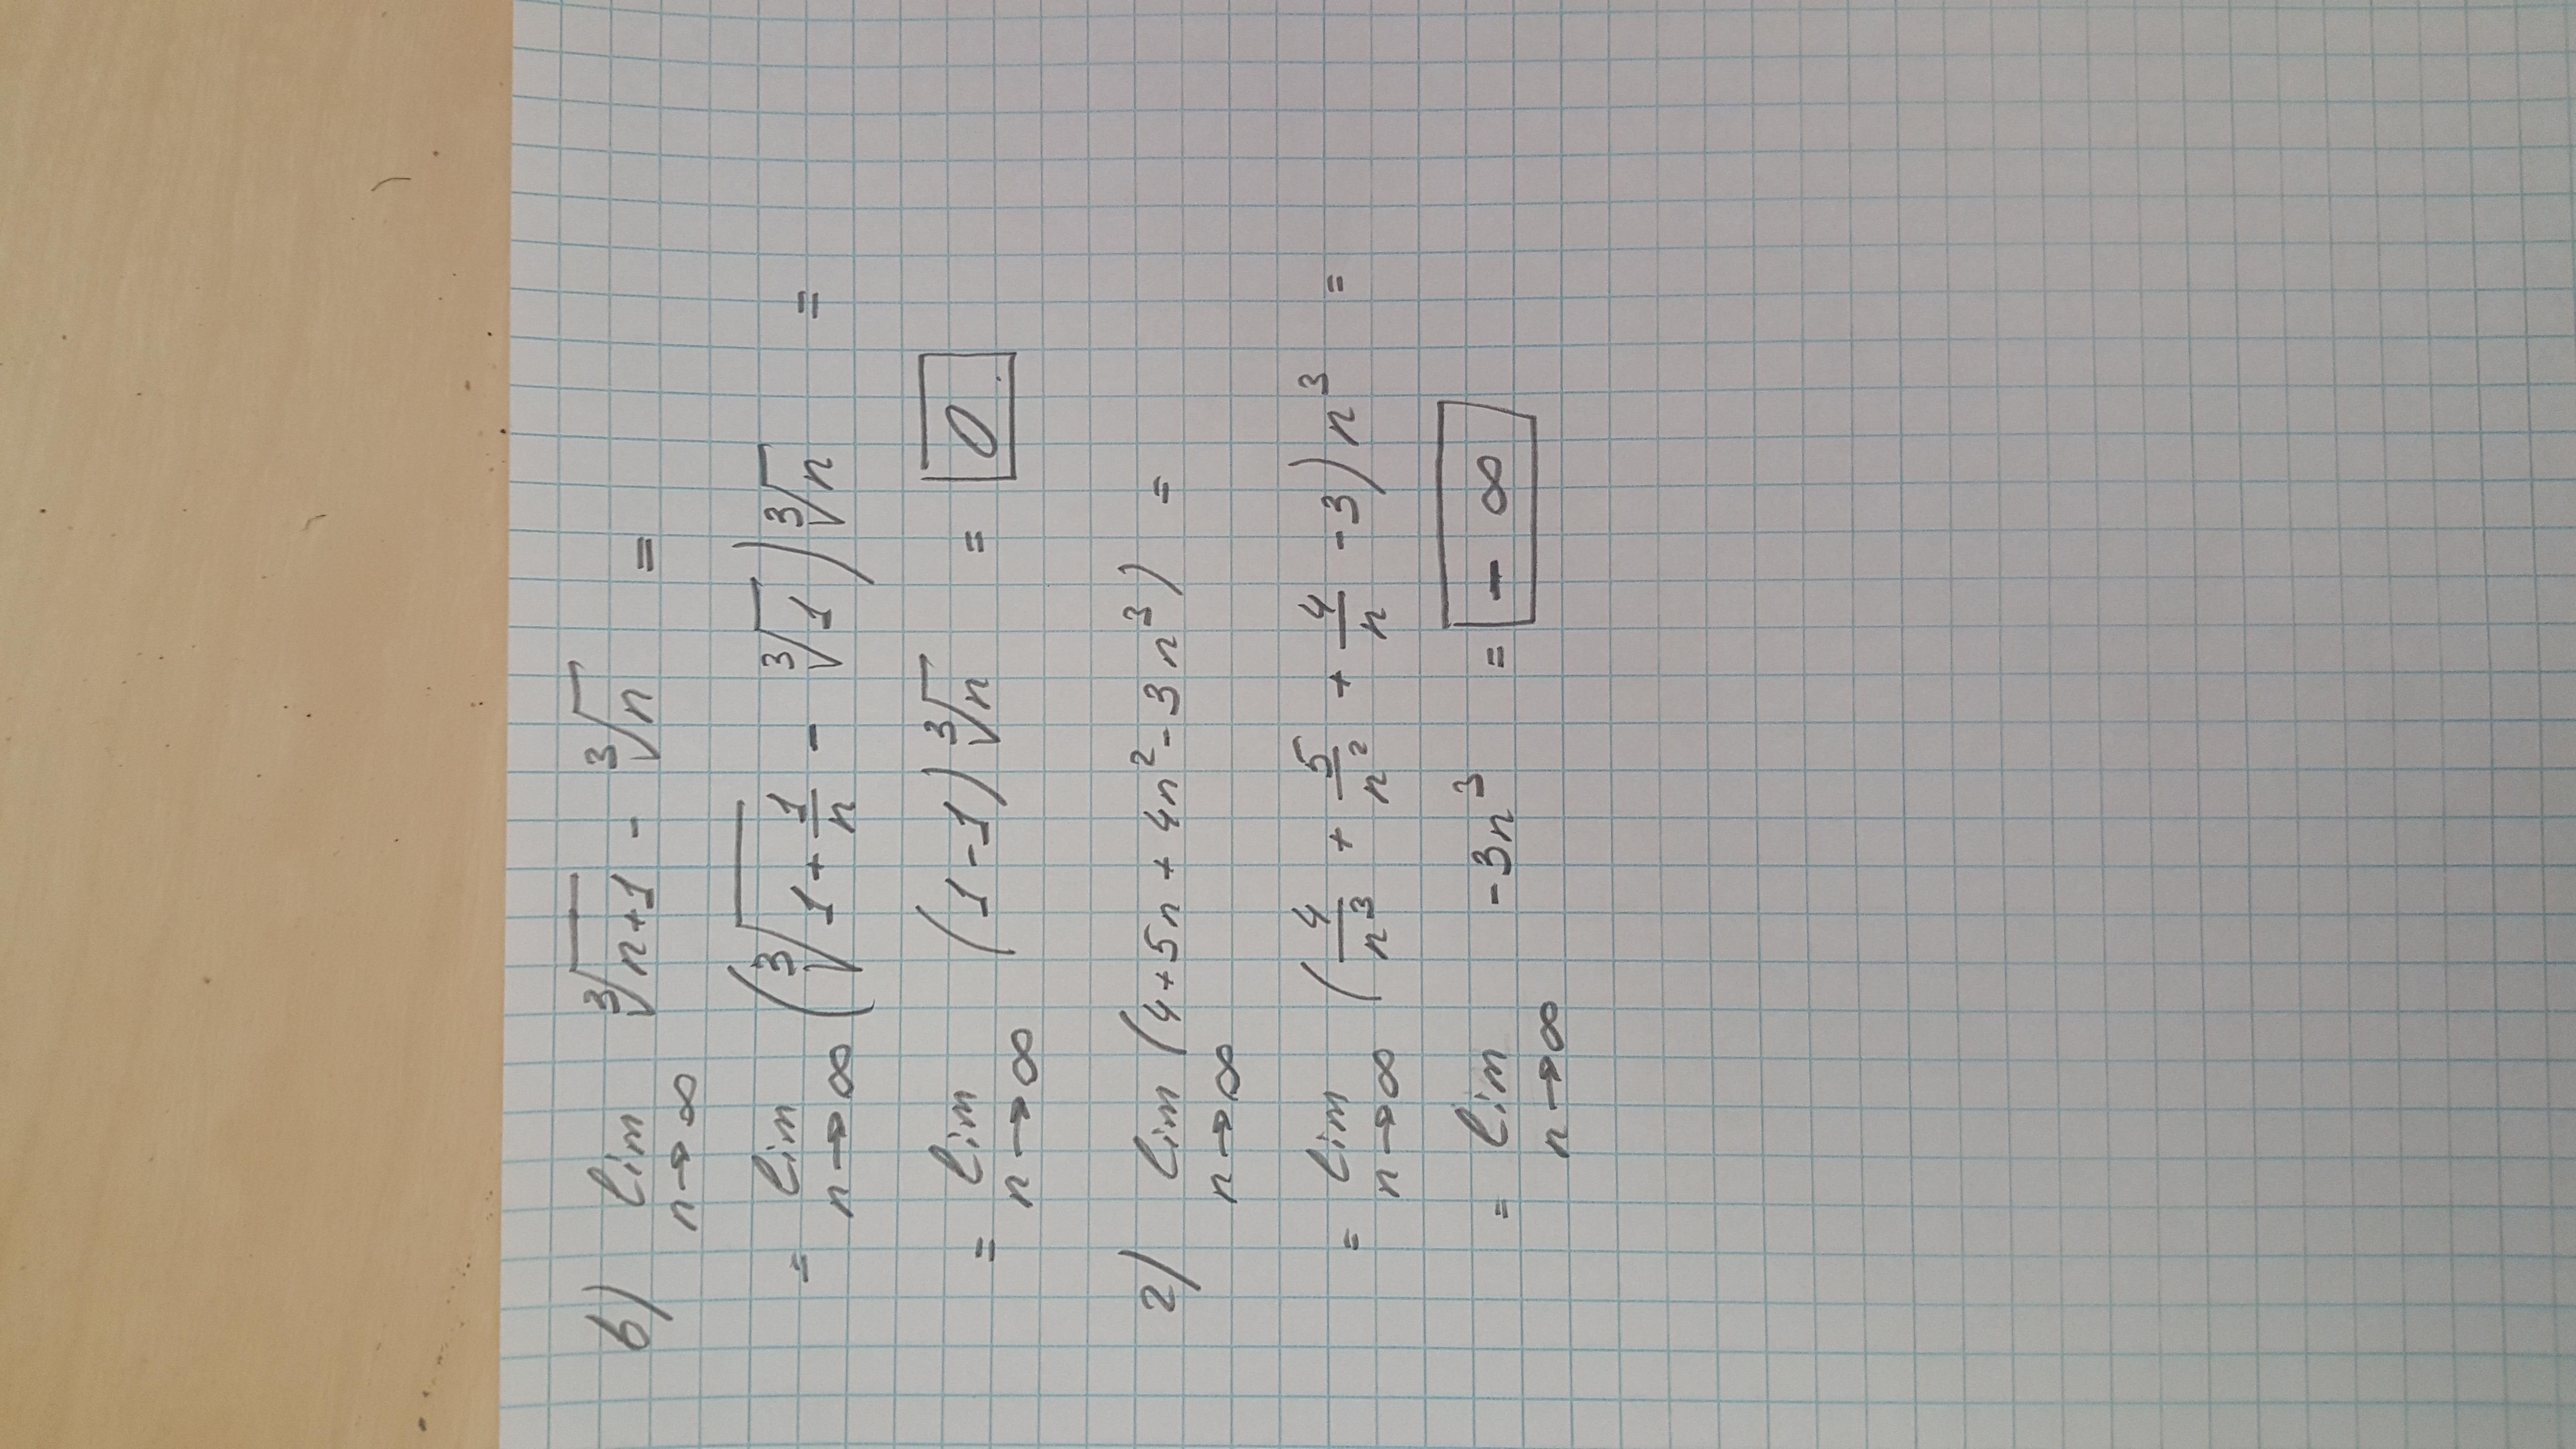 б) lim n→∞ ∛(n+1) - ∛n =
= lim n→∞ (∛(1 + 1/n) - ∛1) ∛n =
= lim n→∞ (1-1) ∛n = 0
2) lim n→∞ (4+5n+4n²-3n³) =
= lim n→∞ (4/n³ + 5/n² + 4/n - 3) n³ =
= lim n→∞ -3n³ = -∞